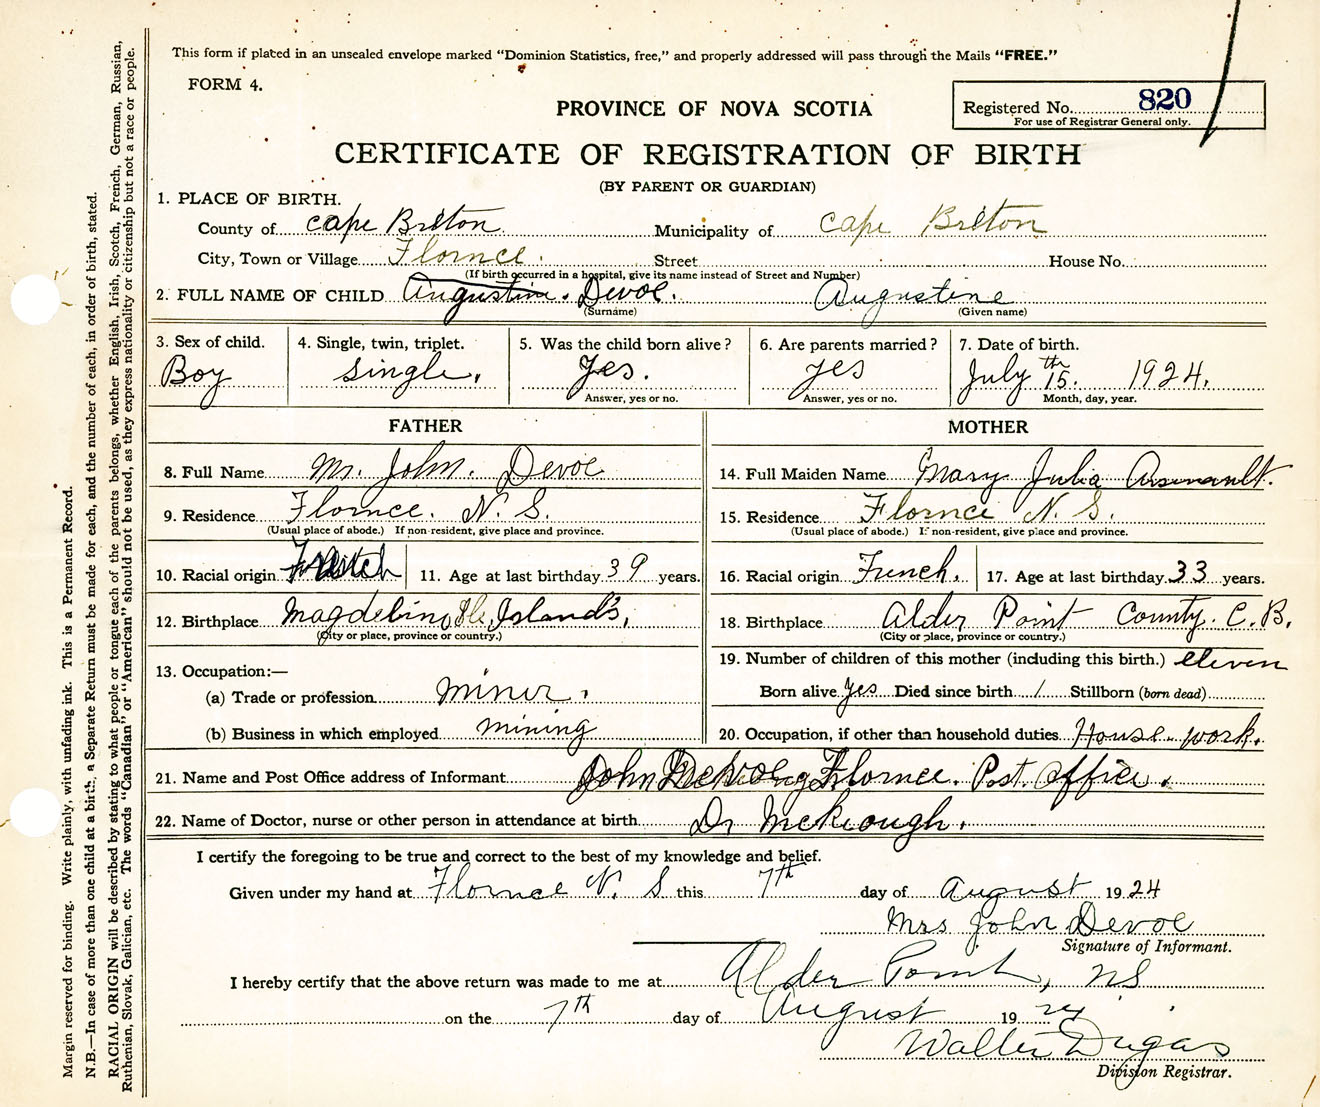 This form if placed in an unsealed envelope marked “Dominion Statistics, free,” and properly addressed will pass through the Mails “FREE.”
FORM 4.
Registered No. 820
For use of Registrar General only.
PROVINCE OF NOVA SCOTIA
CERTIFICATE OF REGISTRATION OF BIRTH
(BY PARENT OR GUARDIAN)
1. PLACE OF BIRTH.
County of Cape Breton Municipality of Cape Breton
City, Town or Village Flornce. Street House No.
(If birth occurred in a hospital, give its name instead of Street and Number)
2. FULL NAME OF CHILD Augustine. Devoe. Augustine
(Surname) (Given name)
3. Sex of child. 4. Single, twin, triplet. 5. Was the child born alive? 6. Are parents married? 7. Date of birth.
Boy single. Yes. yes July 15th. 1924.
Answer, yes or no. Answer, yes or no. Month, day, year.
FATHER MOTHER
8. Full Name Mr. John. Devoe 14. Full Maiden Name Mary Julia Arsenault.
9. Residence Flornce. N. S. 15. Residence Flornce N. S.
(Usual place of abode.) If non-resident, give place and province. (Usual place of abode.) If non-resident, give place and province.
10. Racial origin 11. Age at last birthday 39 years. 16. Racial origin French. 17. Age at last birthday 33 years.
12. Birthplace Island's. 18. Birthplace Alder Point County. C.B.
(City or place, province or country.) (City or place, province or country.)
13. Occupation:— 19. Number of children of this mother (including this birth.) eleven
(a) Trade or profession miner. Born alive yes Died since birth 1 Stillborn (born dead)
(b) Business in which employed mining 20. Occupation, if other than household duties House work.
21. Name and Post Office address of Informant John Flornce. Post office.
22. Name of Doctor, nurse or other person in attendance at birth Dr McKeough.
I certify the foregoing to be true and correct to the best of my knowledge and belief.
Given under my hand at Flornce N. S this 7th day of August 1924
Mrs John Devoe
Signature of Informant.
I hereby certify that the above return was made to me at Alder Point, NS
on the 7th day of August 1924
Walter Dugas
Division Registrar.
Margin reserved for binding. Write plainly, with unfading ink. This is a Permanent Record.
N.B.—In case of more than one child at a birth, a Separate Return must be made for each, and the number of each, in order of birth, stated.
RACIAL ORIGIN will be described by stating to what people or tongue each of the parents belongs, whether English, Irish, Scotch, French, German, Russian,
Ruthenian, Slovak, Galician, etc. The words “Canadian” or “American” should not be used, as they express nationality or citizenship but not a race or people.